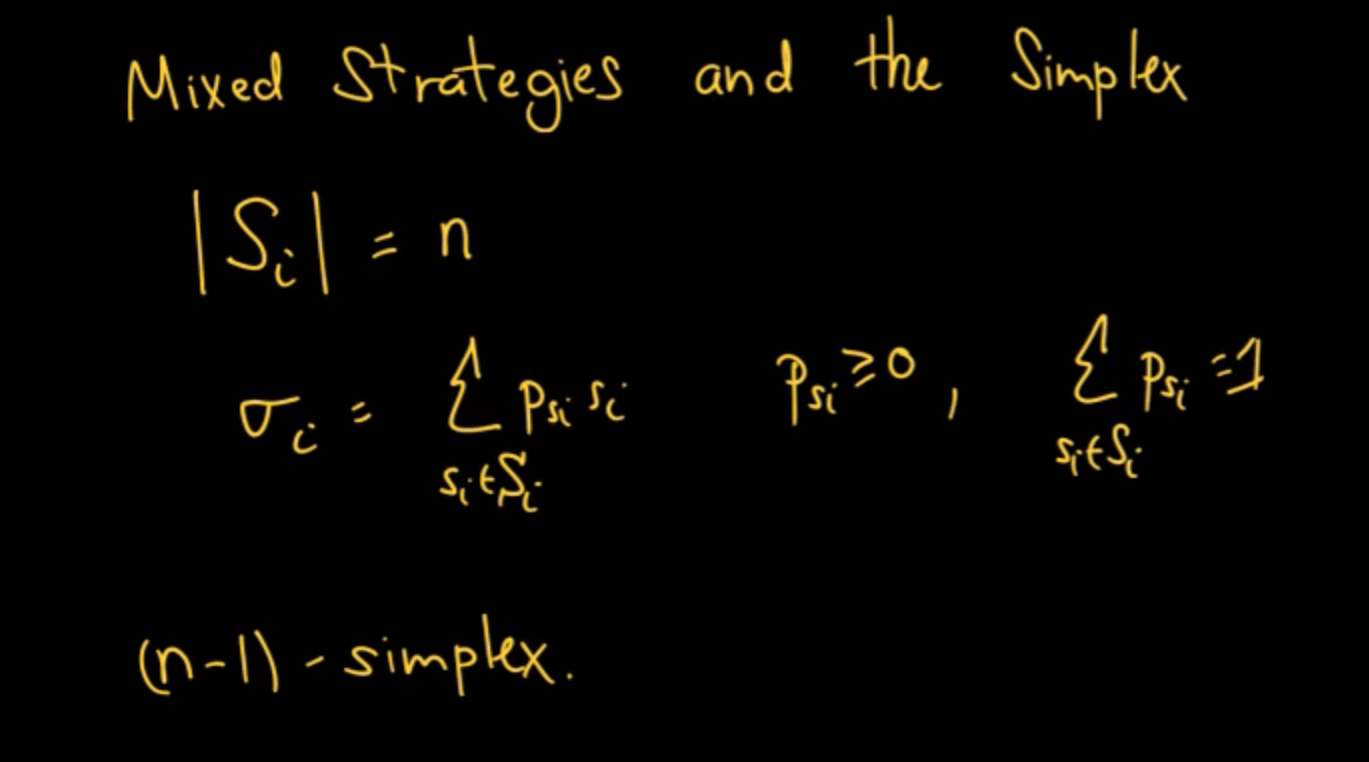 Mixed Strategies and the Simplex
|Sᵢ| = n
σᵢ = Σ_{sᵢ∈Sᵢ} p_{sᵢ} sᵢ    p_{sᵢ} ≥ 0 ,    Σ_{sᵢ∈Sᵢ} p_{sᵢ} = 1
(n-1) - simplex.